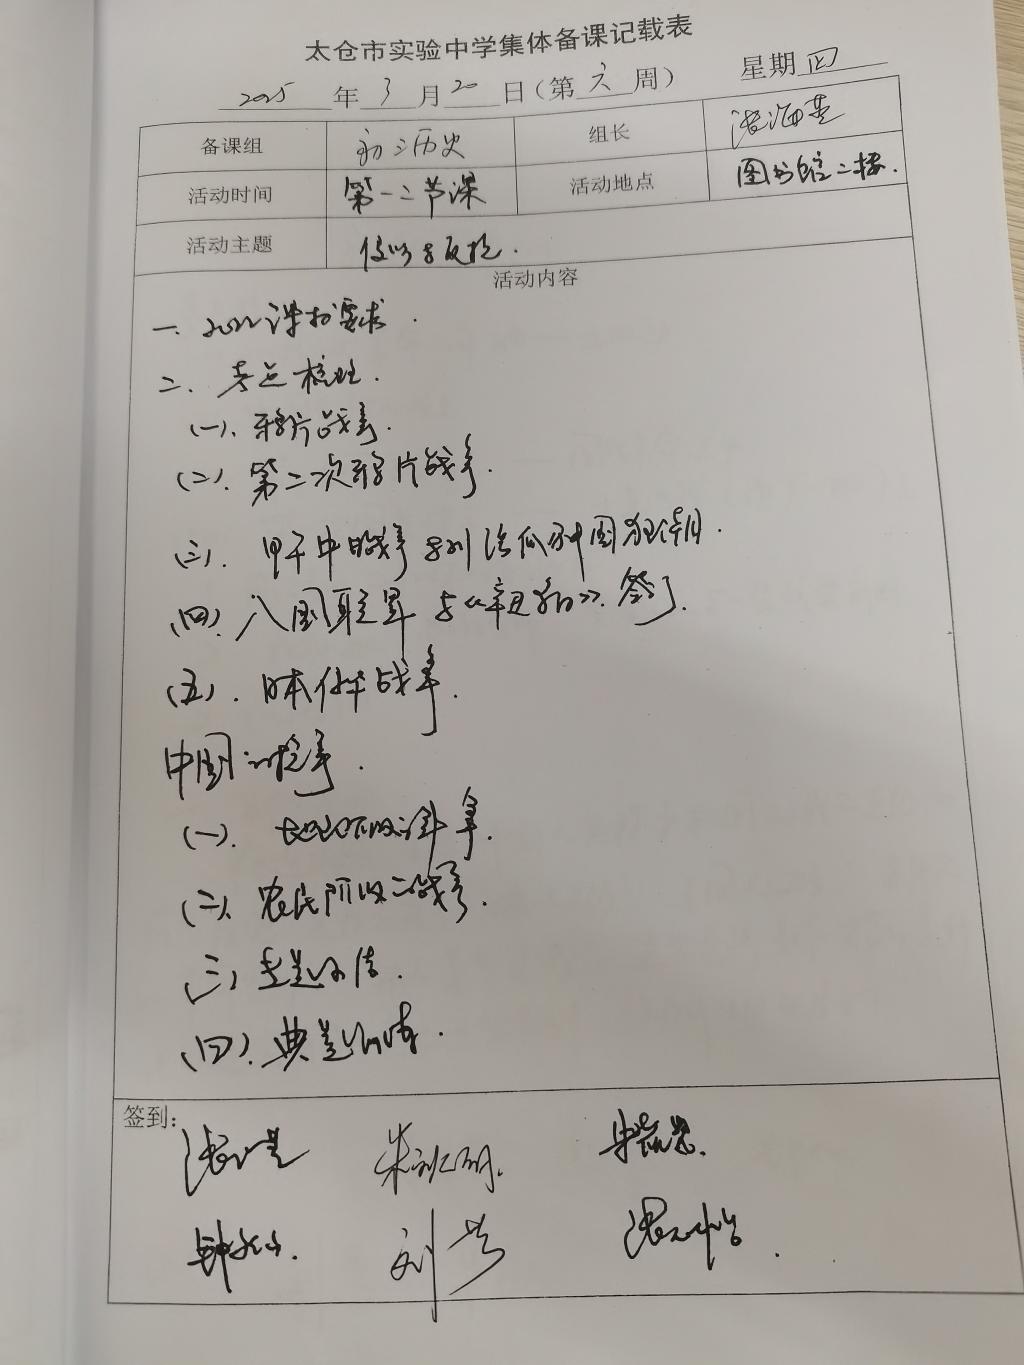 太仓市实验中学集体备课记载表
2025 年 3 月 20 日（第 六 周） 星期 四
备课组 初二历史 组长
活动时间 第一二节课 活动地点 图书馆二楼.
活动主题 侵略与反抗.
活动内容
一. 2022课标要求.
二. 考点梳理.
(一). 鸦片战争.
(二). 第二次鸦片战争.
(三). 甲午中日战争与列强瓜分中国狂潮.
(四). 八国联军与《辛丑条约》签订.
(五). 日本侵华战争.
中国的抗争.
(一). 地主阶级的抗争.
(二). 农民阶级的战争.
(三)
(四).
签到:
刘芳